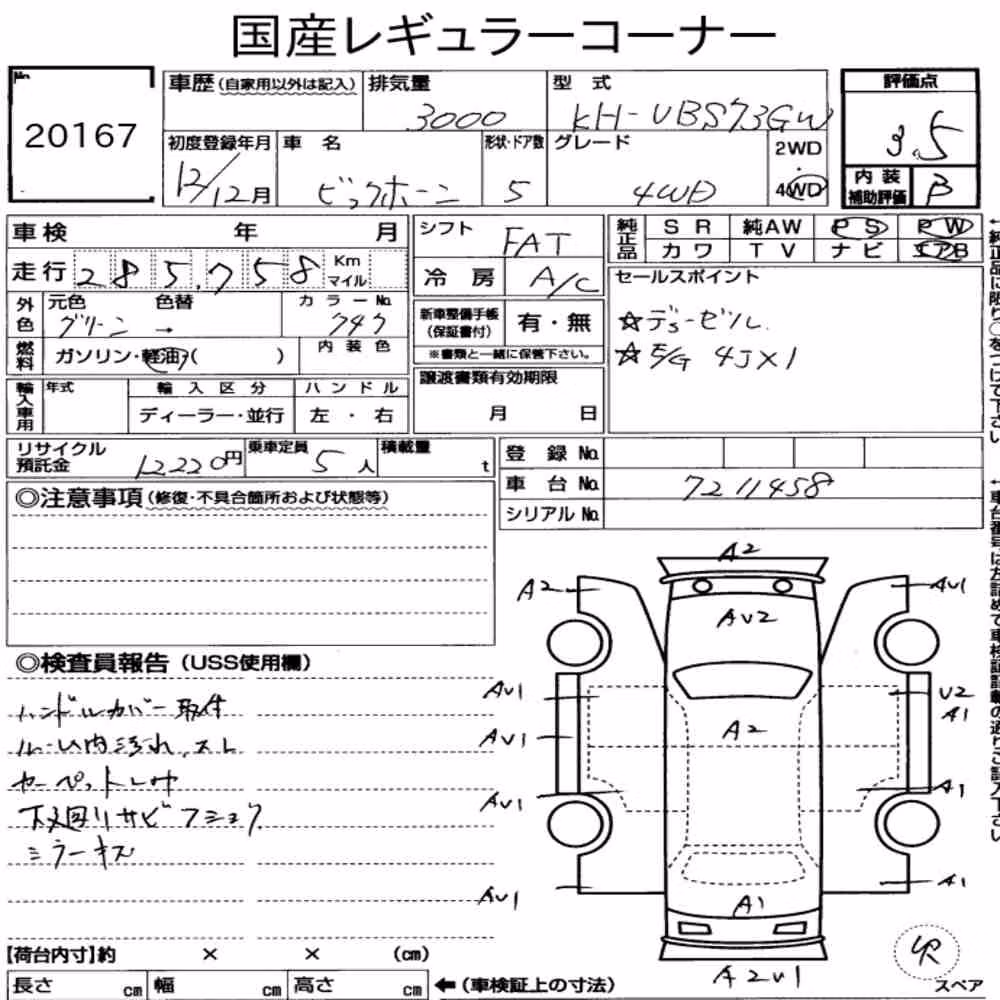 国産レギュラーコーナー
No. 20167
車歴(自家用以外は記入) 排気量 3000 型式 KH-UBS73GW 評価点 3.5
初度登録年月 12/12月 車名 ビッグホーン 形状・ドア数 5 グレード 4WD 2WD・4WD 内装補助評価 B
車検 年 月
走行 285,758 Km マイル
外色 元色 グリーン 色替 → カラーNo. 747
燃料 ガソリン・軽油・( ) 内装色
輸入車用 年式 輸入区分 ディーラー・並行 ハンドル 左・右
シフト FAT
冷房 A/C
新車整備手帳(保証書付) 有・無
※書類と一緒に保管下さい。
譲渡書類有効期限
月 日
純正品 SR 純AW PS PW
カワ TV ナビ エアB
セールスポイント
☆ディーゼル
☆E/G 4JX1
←純正品に限り○をつけて下さい
リサイクル預託金 12220円 乗車定員 5人 積載量 t
登録No.
車台No. 7211458
シリアルNo.
←車台番号は左詰めで車検証記載の通りご記入下さい
◎注意事項(修復・不具合箇所および状態等)
◎検査員報告(USS使用欄)
ハンドルカバー取付
ルーム内汚れ、スレ
カーペットしみ
下廻りサビ
ミラーキズ
A2
A2 AV1
AV2
AV1 U2
A1
AV1 A2
AV1 A1
AV1 A1
A1
A2V1
スペア
【荷台内寸】約 × × (cm)
長さ cm 幅 cm 高さ cm ←(車検証上の寸法)